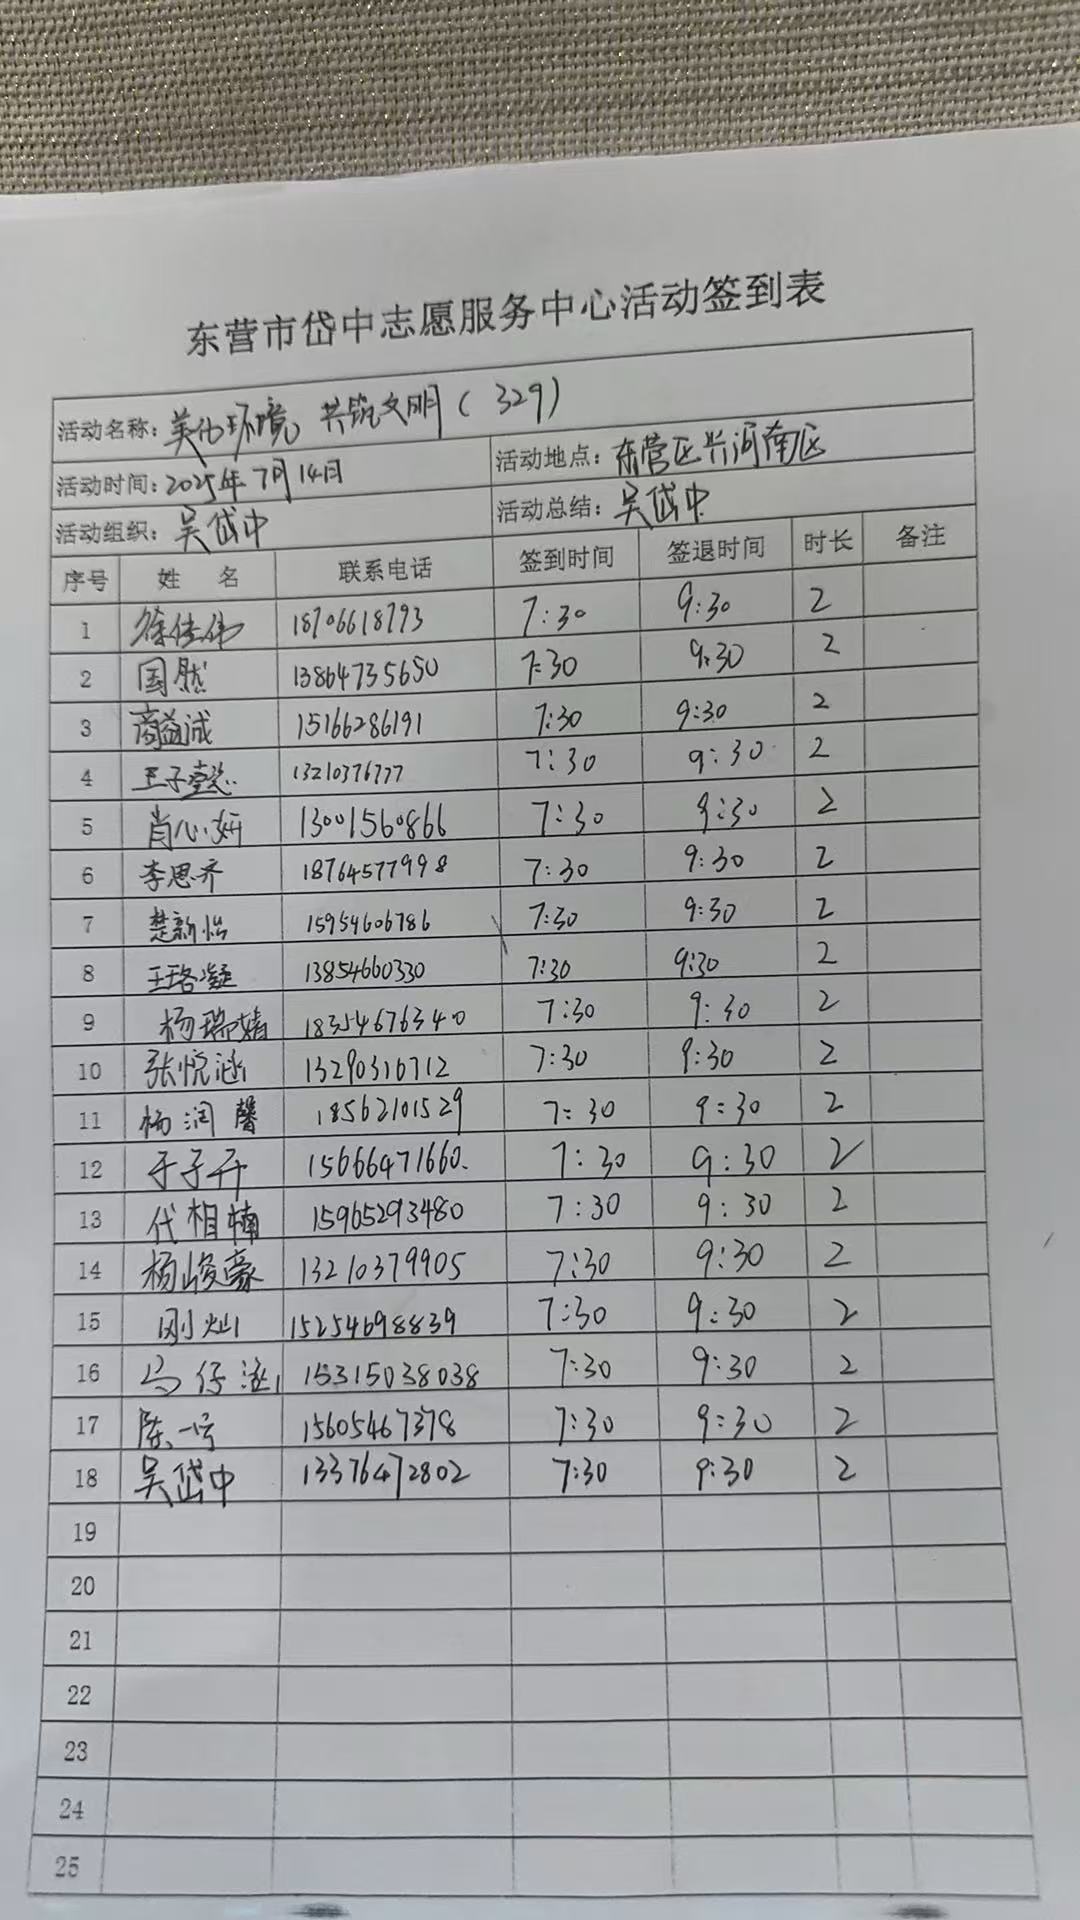 东营市岱中志愿服务中心活动签到表
活动名称：美化环境，共筑文明（329）
活动时间：2025年7月14日 活动地点：东营区兴河南区
活动组织：吴岱中 活动总结：吴岱中
序号 姓 名 联系电话 签到时间 签退时间 时长 备注
1 徐佳伟 18706618793 7:30 9:30 2
2 国然 13864735650 7:30 9:30 2
3 商益诚 15166286191 7:30 9:30 2
4 王子懿 13210376777 7:30 9:30 2
5 肖心妍 13001560866 7:30 9:30 2
6 李思齐 18764577998 7:30 9:30 2
7 楚新怡 15954606786 7:30 9:30 2
8 王珞凝 13854660330 7:30 9:30 2
9 杨瑞婧 18354676340 7:30 9:30 2
10 张悦涵 13290316712 7:30 9:30 2
11 杨润馨 18562101529 7:30 9:30 2
12 于子开 15666471660. 7:30 9:30 2
13 代相楠 15965293480 7:30 9:30 2
14 杨峻豪 13210379905 7:30 9:30 2
15 刚灿 15254698839 7:30 9:30 2
16 马仔涵 15315038038 7:30 9:30 2
17 陈一 15605467378 7:30 9:30 2
18 吴岱中 13376472802 7:30 9:30 2
19
20
21
22
23
24
25